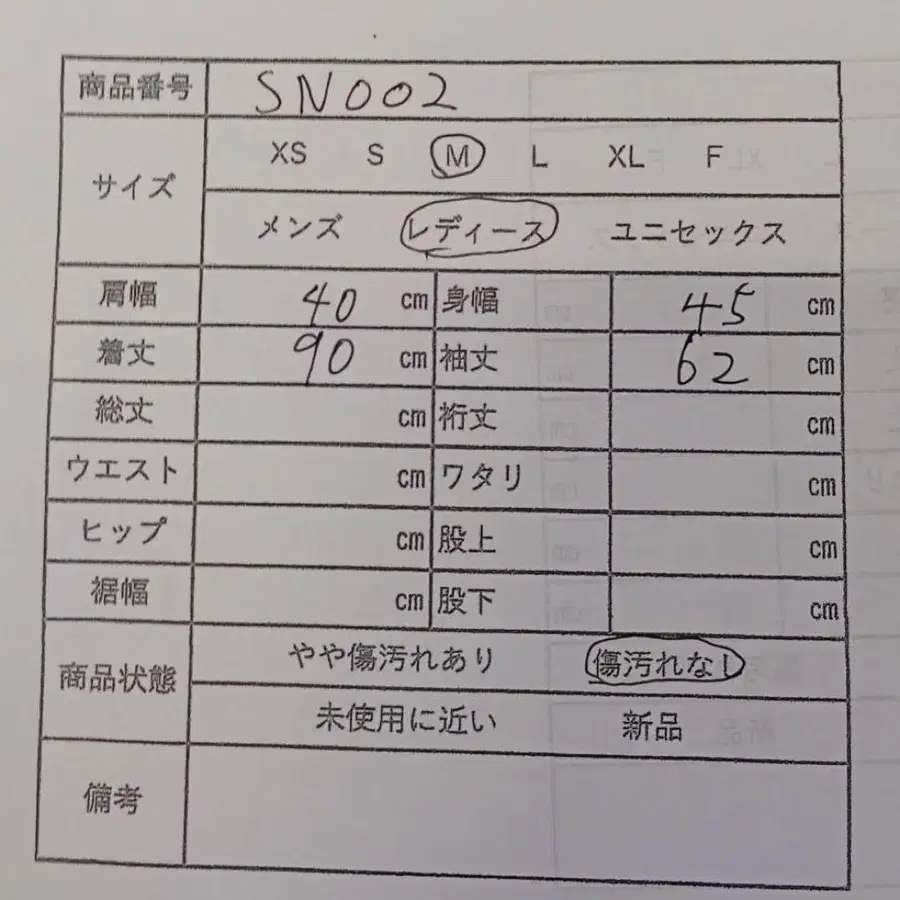 商品番号 SN002
サイズ XS S M L XL F
メンズ レディース ユニセックス
肩幅 40 cm 身幅 45 cm
着丈 90 cm 袖丈 62 cm
総丈 cm 裄丈 cm
ウエスト cm ワタリ cm
ヒップ cm 股上 cm
裾幅 cm 股下 cm
商品状態 やや傷汚れあり 傷汚れなし
未使用に近い 新品
備考